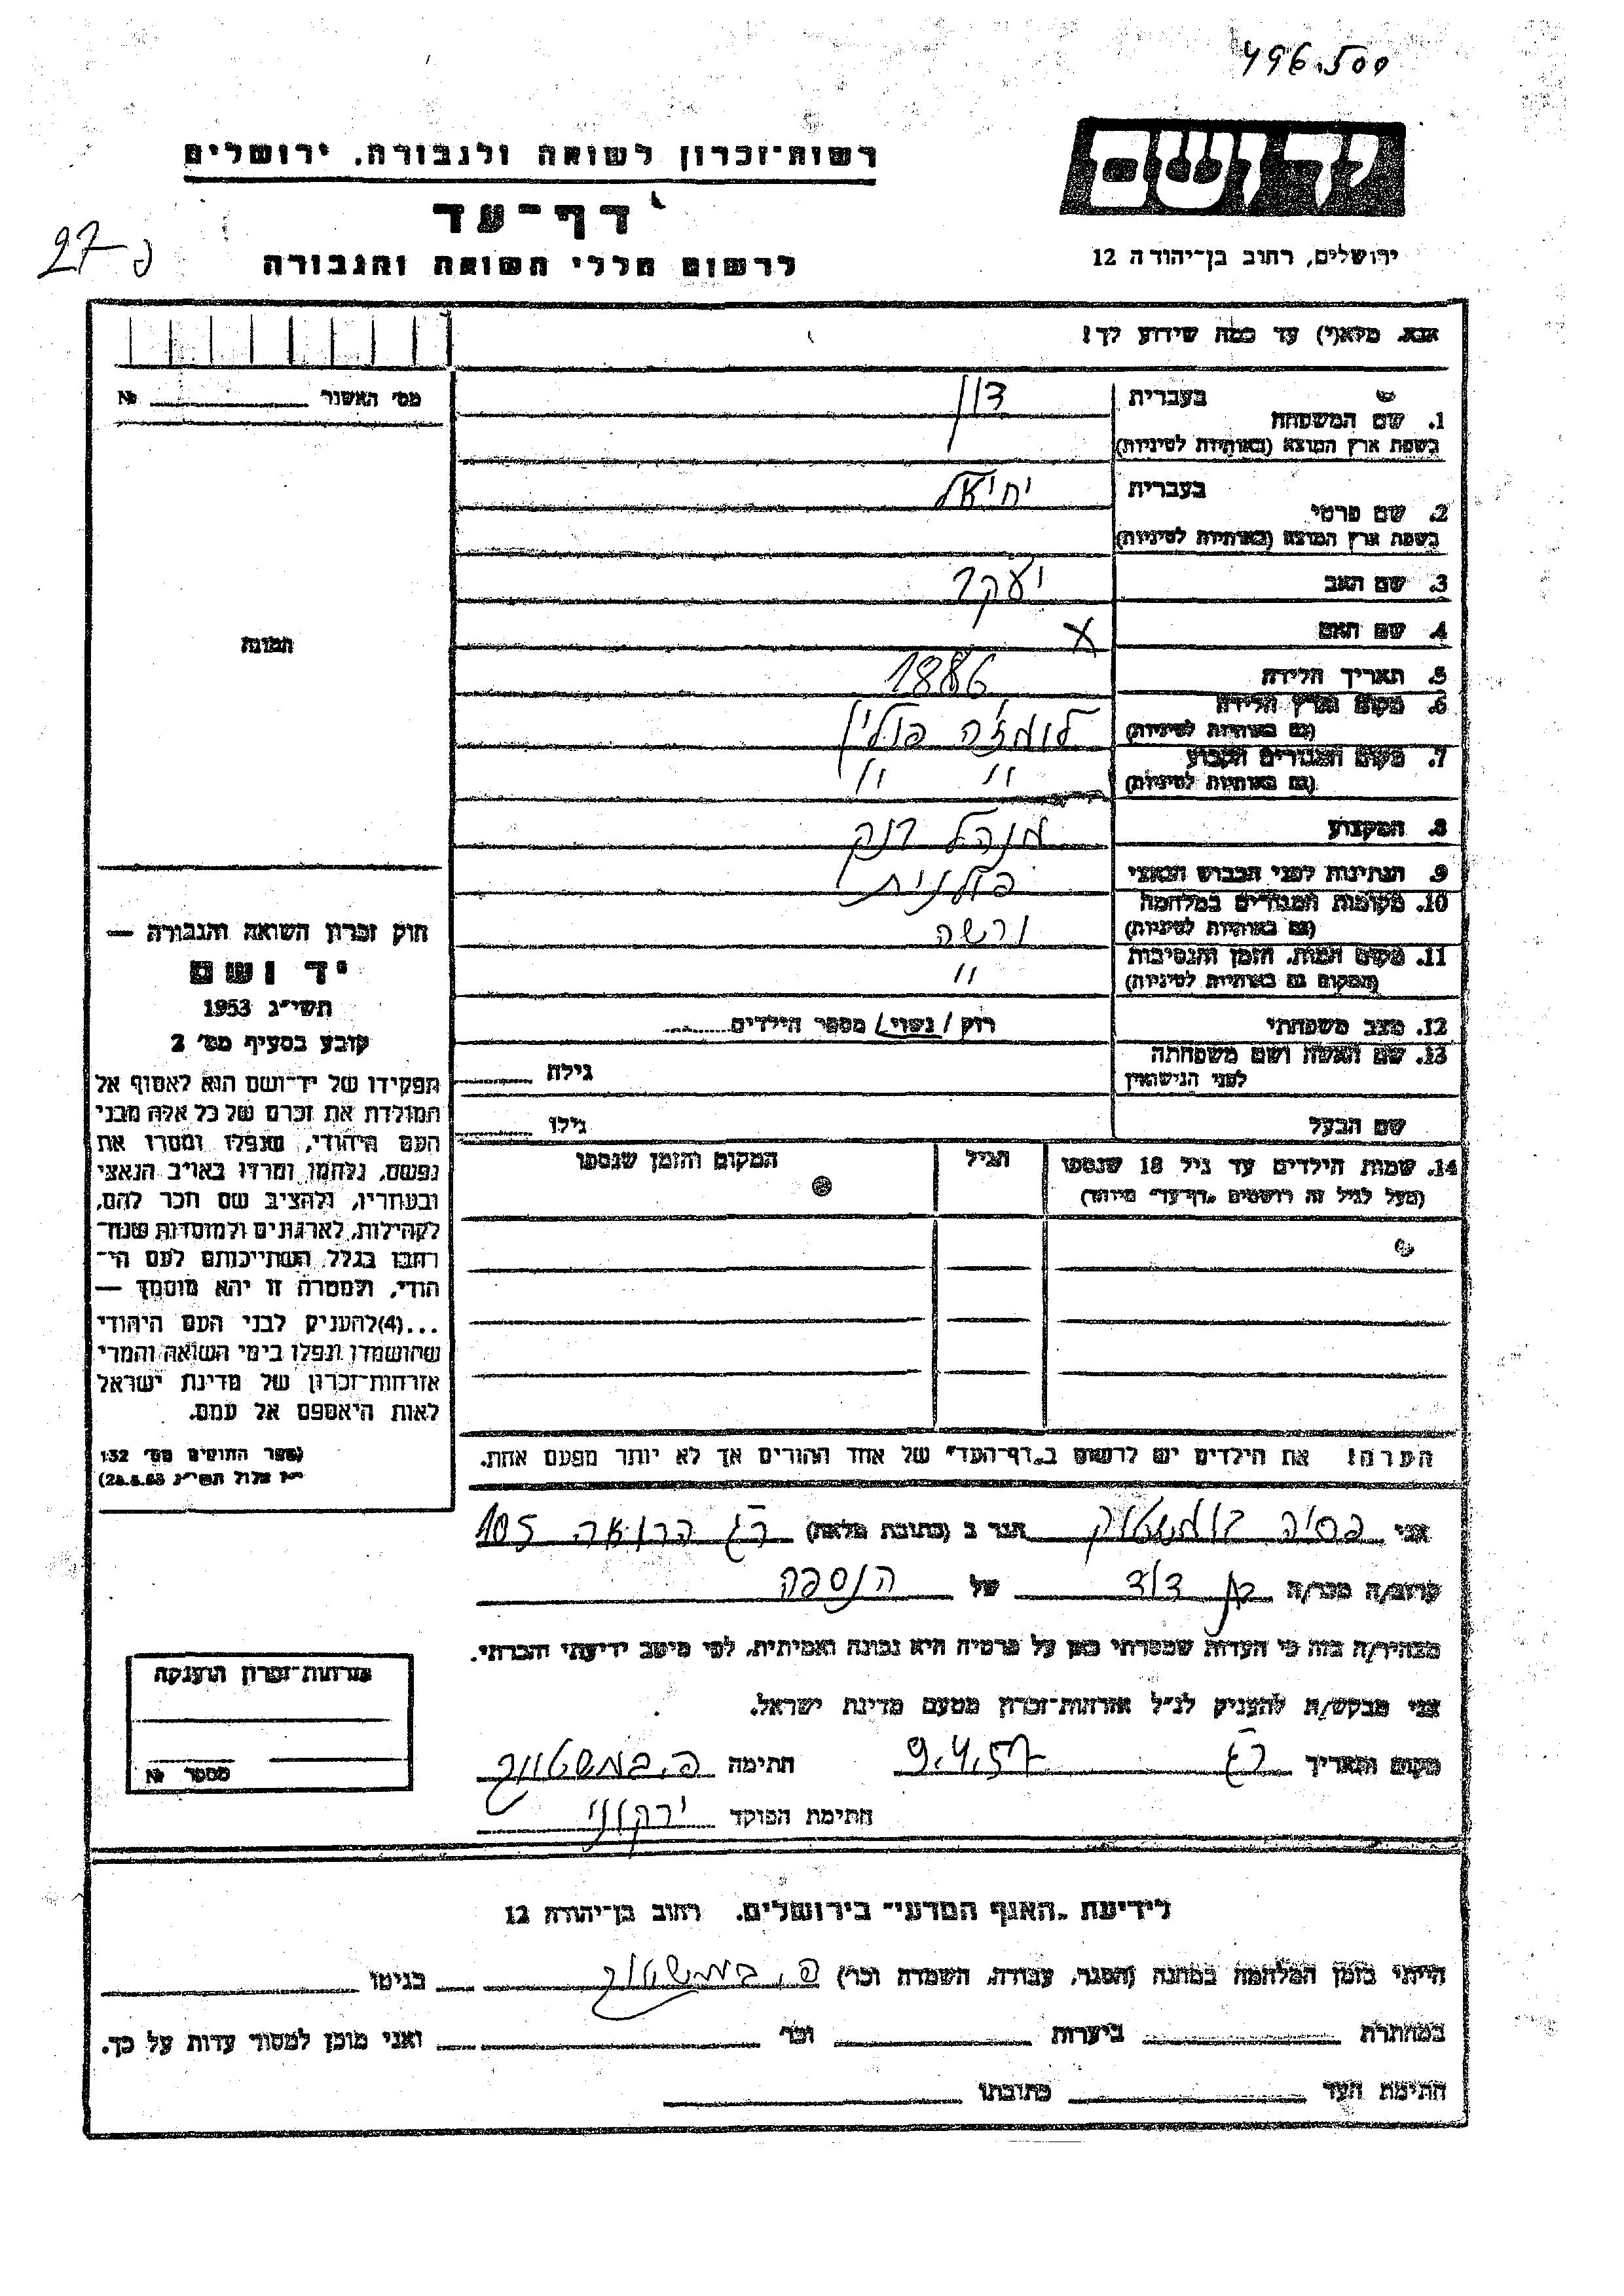 496.500
יד ושם
רשות־זכרון לשואה ולגבורה, ירושלים
דף־עד
27 פ
לרשום חללי השואה והגבורה
ירושלים, רחוב בן־יהודה 12
אנא, מלא(י) עד כמה שידוע לך!
מס' האשור № ______
בעברית
1. שם המשפחה
דון
בשפת ארץ המוצא (באותיות לטיניות)
בעברית
2. שם פרטי
יחיאל
בשפת ארץ המוצא (באותיות לטיניות)
3. שם האב יעקב
4. שם האם X
5. תאריך הלידה 1886
6. מקום וארץ הלידה לומז'ה פולין
(גם באותיות לטיניות)
7. מקום המגורים הקבוע " "
(גם באותיות לטיניות)
8. המקצוע מנהל בנק
9. הנתינות לפני הכבוש הנאצי פולנית
10. מקומות המגורים במלחמה ורשה
(גם באותיות לטיניות)
11. מקום המות, הזמן והנסיבות "
(המקום גם באותיות לטיניות)
12. מצב משפחתי רווק / נשוי / מספר הילדים........
13. שם האשה ושם משפחתה
לפני הנישואין
גילה
שם הבעל גילו
14. שמות הילדים עד גיל 18 שנספו הגיל המקום והזמן שנספו
(מעל לגיל זה רושמים „דף־עד" מיוחד)
הערה! את הילדים יש לרשום ב„דף־העד" של אחד ההורים אך לא יותר מפעם אחת.
תמונה
חוק זכרון השואה והגבורה —
יד ושם
תשי"ג 1953
קובע בסעיף מס' 2
תפקידו של יד־ושם הוא לאסוף אל
המולדת את זכרם של כל אלה מבני
העם היהודי, שנפלו ומסרו את
נפשם, נלחמו ומרדו באויב הנאצי
ובעוזריו, ולהציב שם וזכר להם,
לקהילות, לארגונים ולמוסדות שנח־
רבו בגלל השתייכותם לעם הי־
הודי, ולמטרה זו יהא מוסמך —
...(4) להעניק לבני העם היהודי
שהושמדו ונפלו בימי השואה והמרי
אזרחות־זכרון של מדינת ישראל
לאות היאספם אל עמם.
(ספר החוקים מס' 132
י"ז אלול תשי"ג 28.8.53)
אני פסיה בומשטוק הגר ב (כתובת מלאה) ר"ג הרואה 105
קרוב/ה מכר/ה בת דוד של הנספה
מצהיר/ה בזה כי העדות שמסרתי כאן על פרטיה היא נכונה ואמיתית, לפי מיטב ידיעתי והכרתי.
אני מבקש/ת להעניק לנ"ל אזרחות־זכרון מטעם מדינת ישראל.
מקום ותאריך ר"ג 9.4.57 חתימה פ. במשטוק
חתימת הפוקד ירקוני
אזרחות־זכרון הוענקה
מספר №
לידיעת „האגף המדעי" בירושלים, רחוב בן־יהודה 12
הייתי בזמן המלחמה במחנה (הסגר, עבודה, השמדה וכו') פ. במשטוק בגיטו
במחתרת ביערות וכו' ואני מוכן למסור עדות על כך.
חתימת העד כתובתו